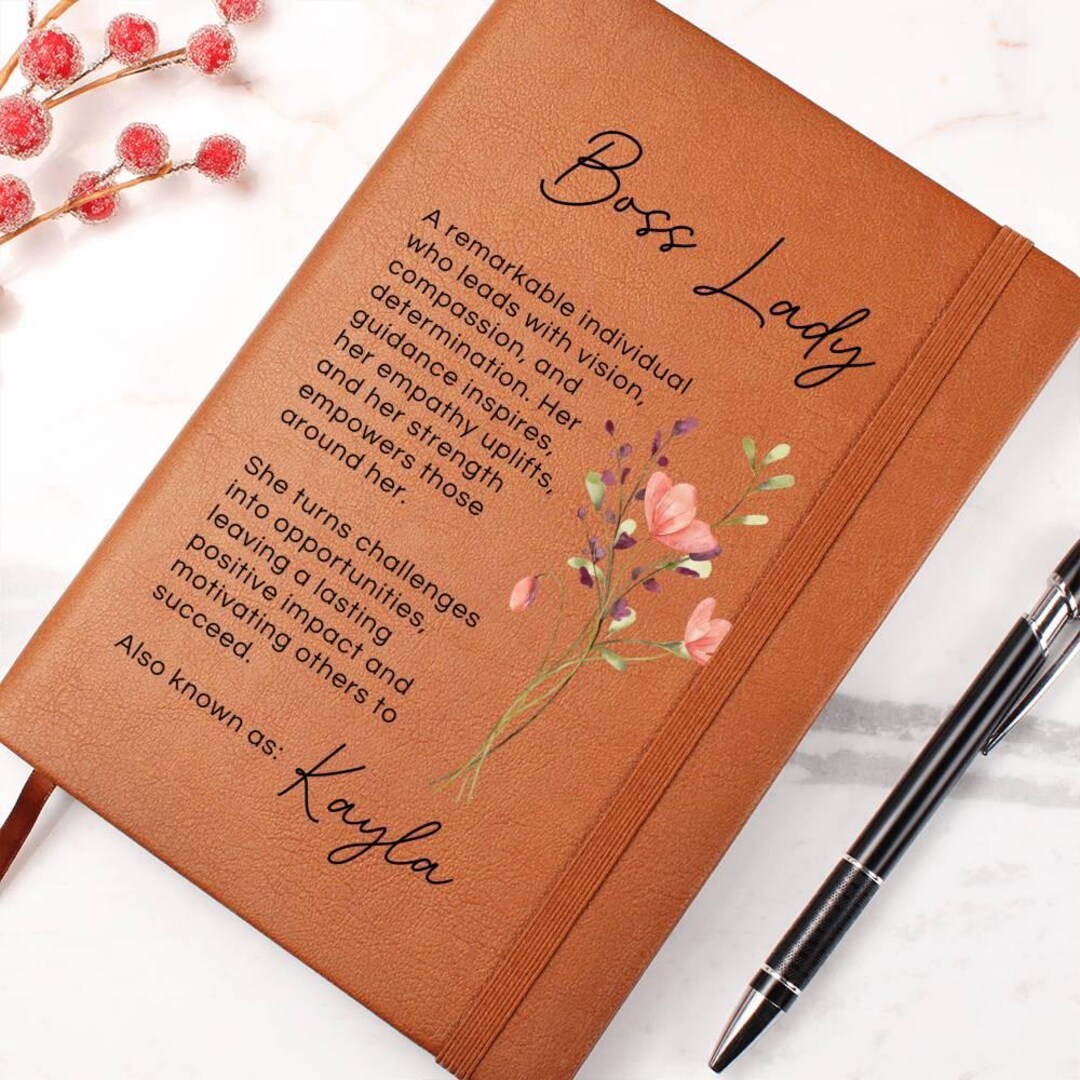 Boss Lady
A remarkable individual
who leads with vision,
compassion, and
determination. Her
guidance inspires,
her empathy uplifts,
and her strength
empowers those
around her.
She turns challenges
into opportunities,
leaving a lasting
positive impact and
motivating others to
succeed.
Also known as:
Kayla